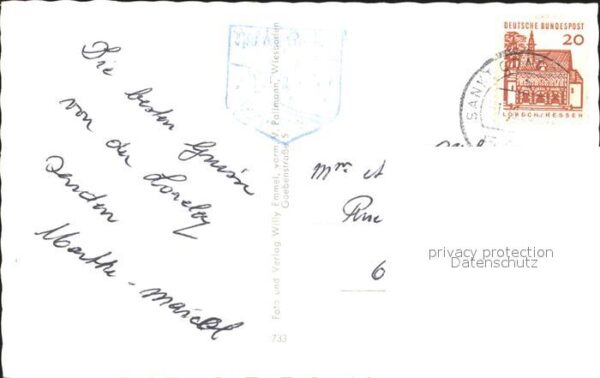 Die besten Grüsse
von der Loreley
senden
Marthe - Marcel
Foto und Verlag Willy Emmel, vorm. V. Pollmann, Wiesbaden
Goebenstraße 5
733
DEUTSCHE BUNDESPOST
20
LORSCH/HESSEN
SANKT GOAR
Mme A
Rue
6
privacy protection
Datenschutz